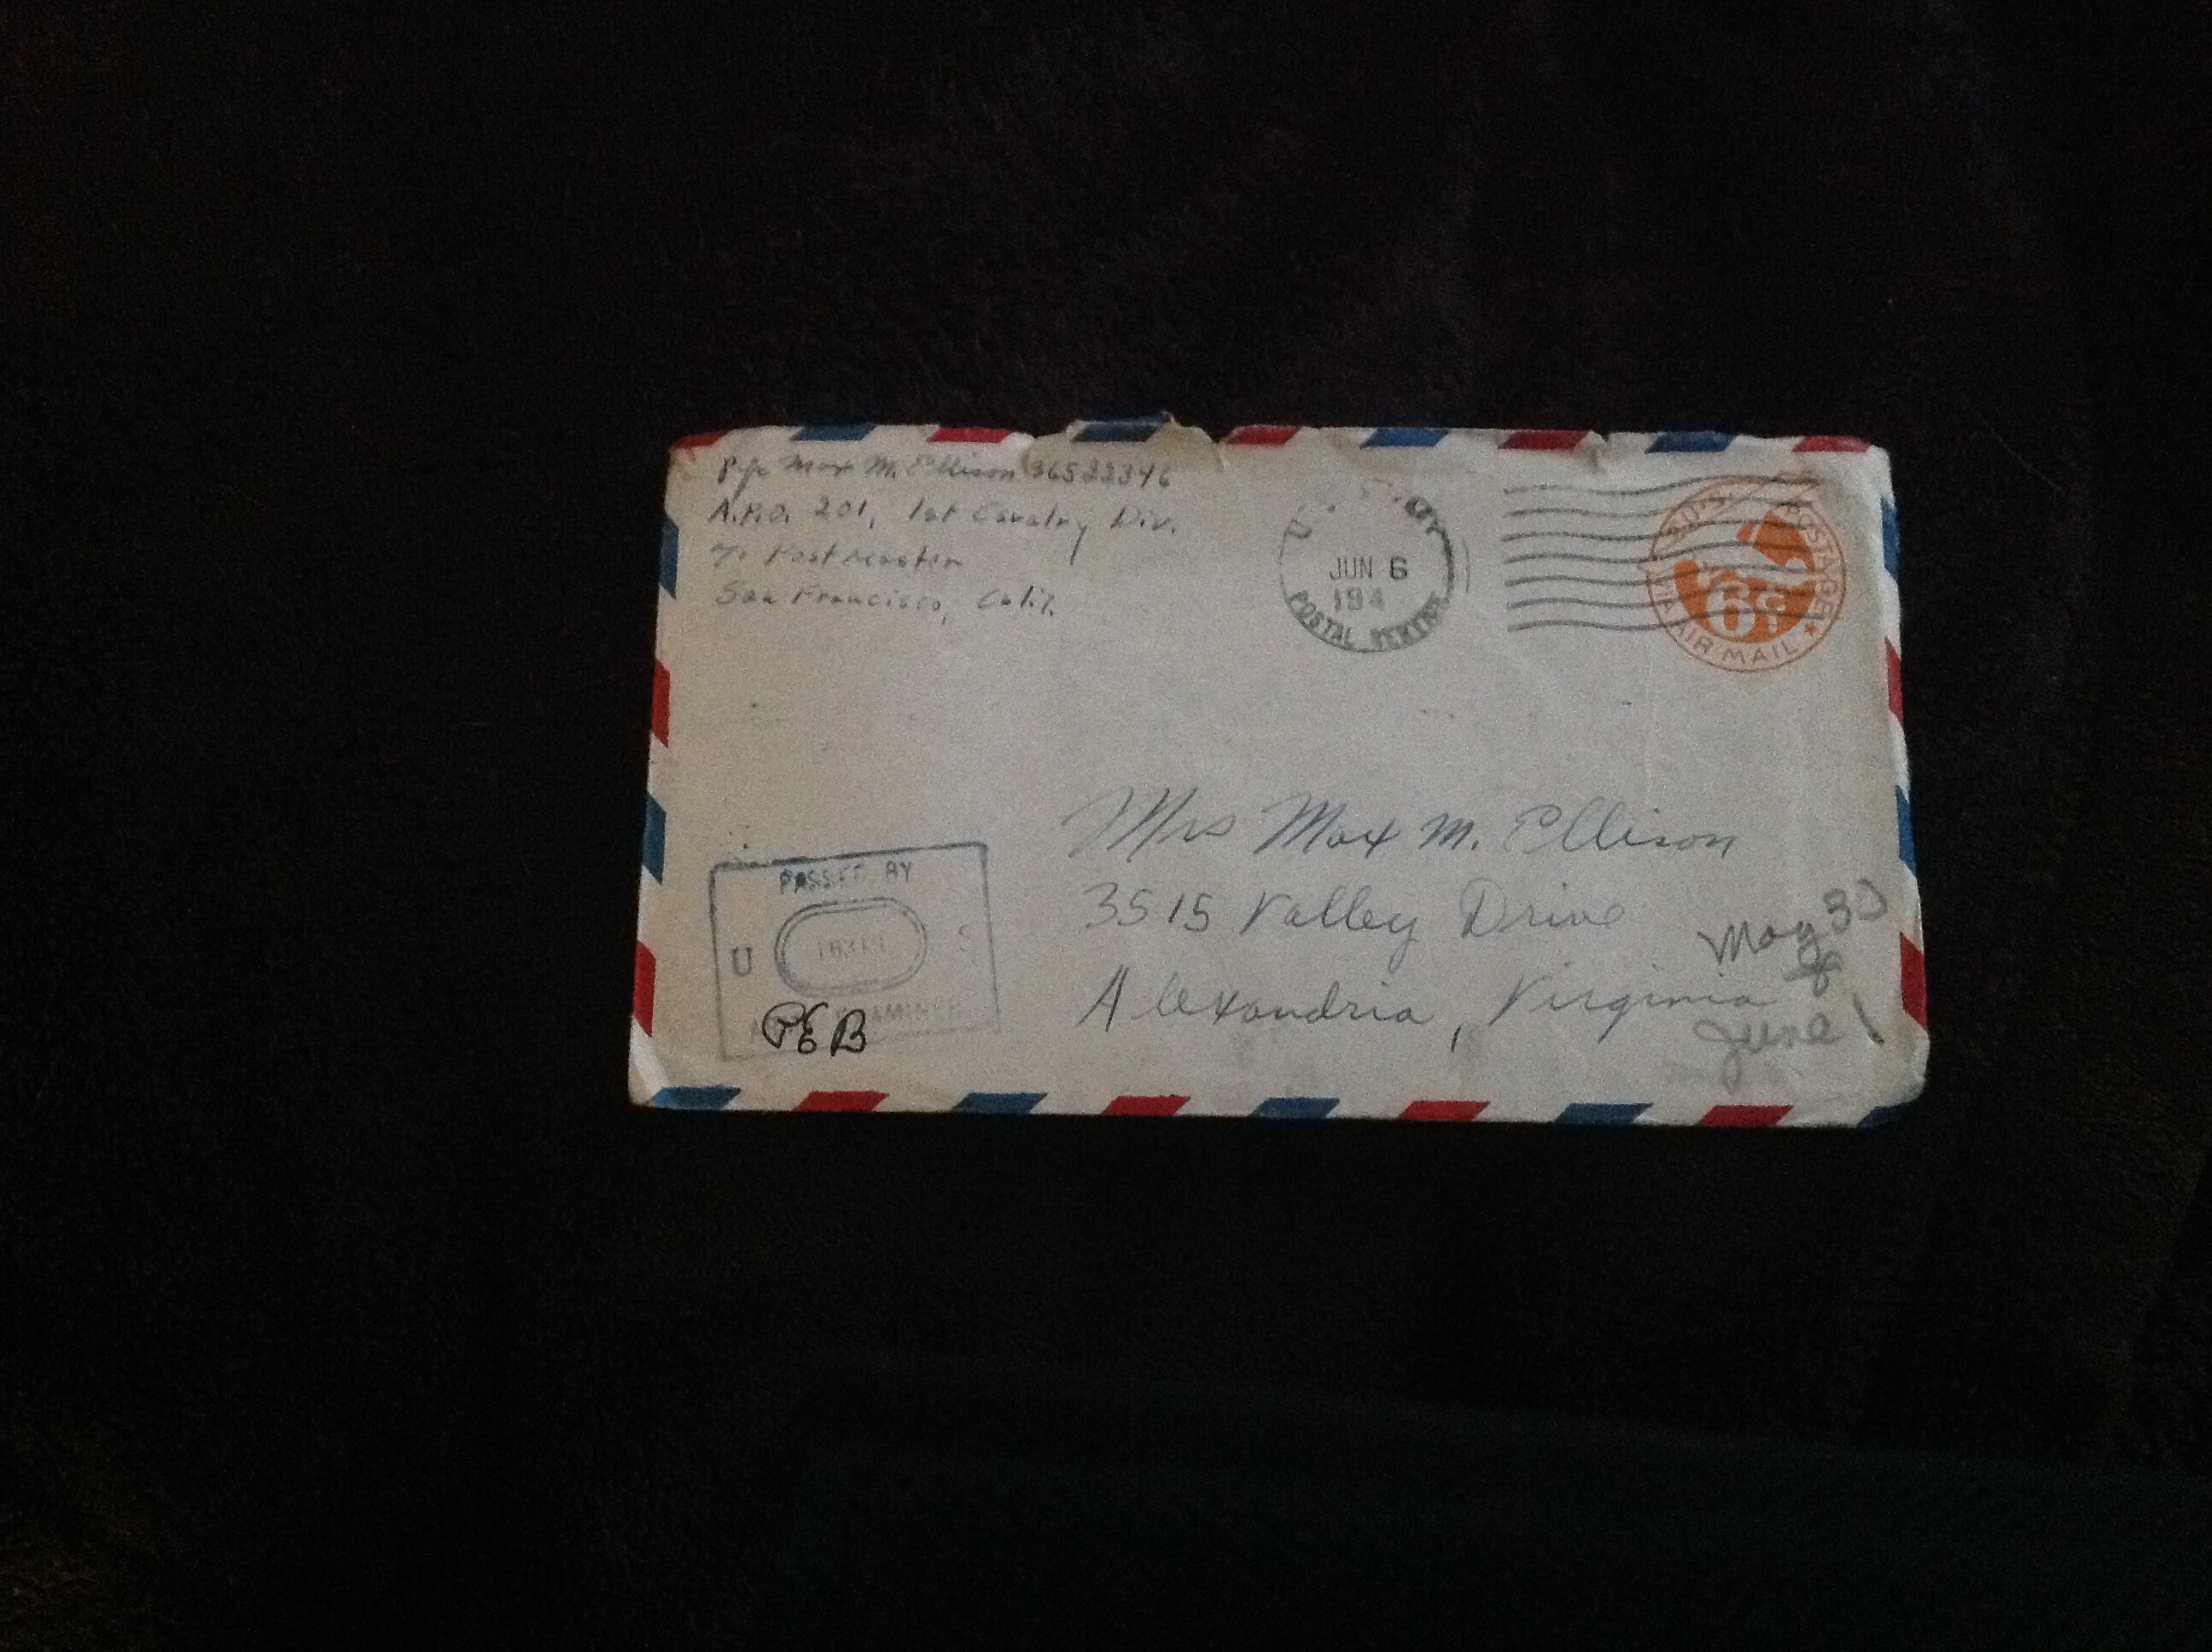 Pfc Max M. Ellison 36522346
A.P.O. 201, 1st Cavalry Div.
c/o Postmaster
San Francisco, Calif.
JUN 6
194
POSTAL SERVICE
U.S. POSTAGE
6¢
VIA AIR MAIL
Mrs Max M. Ellison
3515 Valley Drive
Alexandria, Virginia
May 30
&
June 1
PASSED BY
U S
EXAMINER
PEB